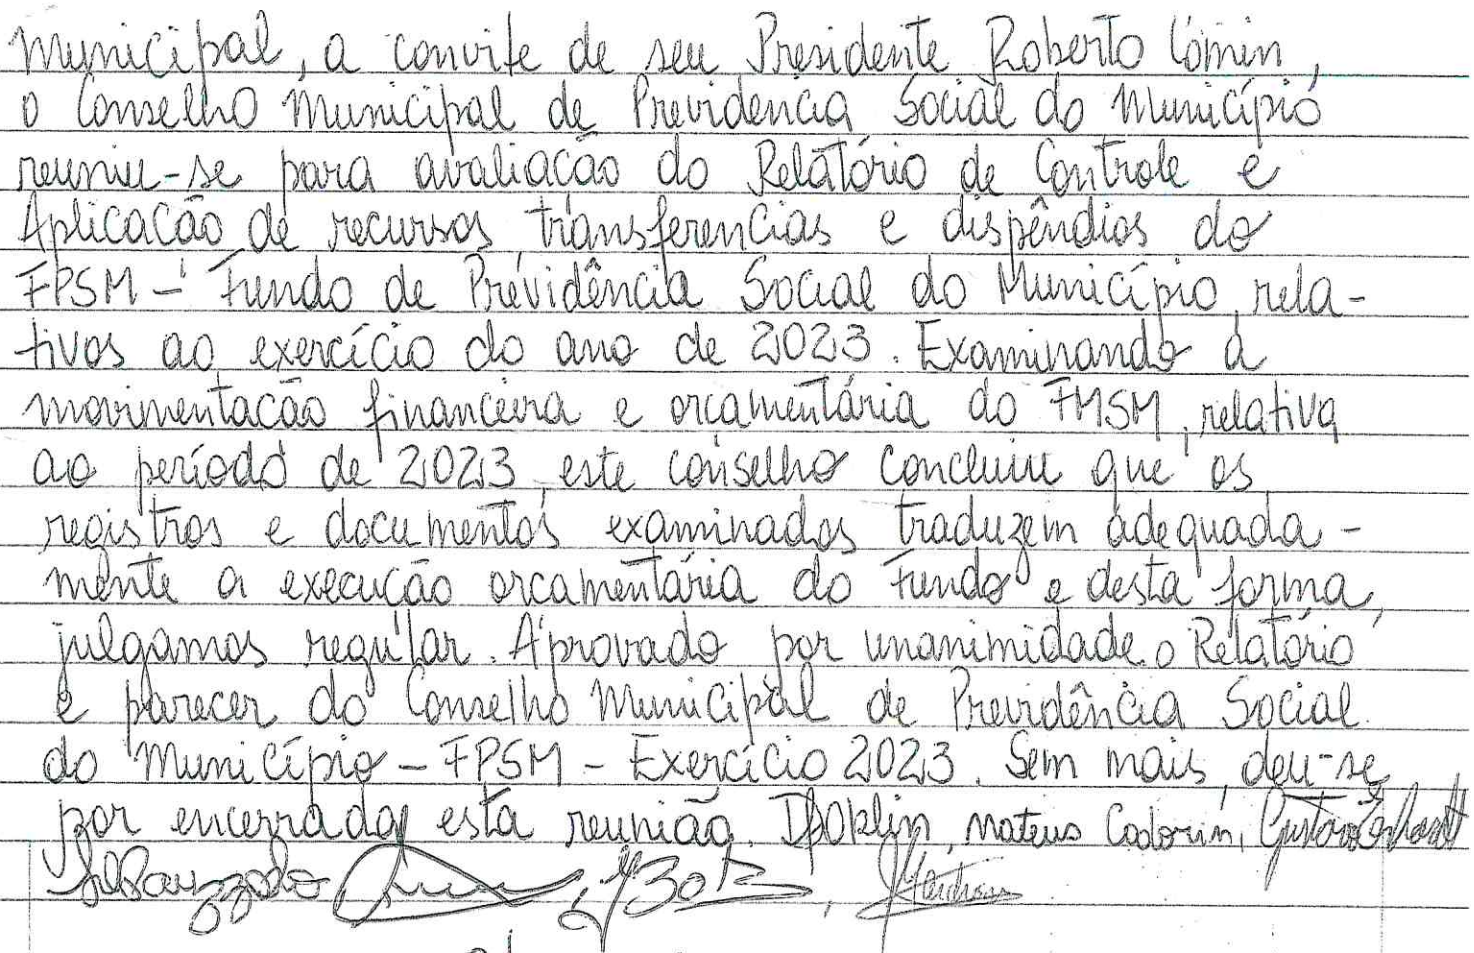 Municipal, a convite de seu Presidente Roberto Cômin,
o Conselho Municipal de Previdência Social do Município
reuniu-se para avaliação do Relatório de Controle e
Aplicacão de recursos transferencias e dispêndios do
FPSM - Fundo de Previdência Social do Município, rela-
tivos ao exercício do ano de 2023. Examinando a
movimentacão financeira e orcamentária do FMSM, relativa
ao período de 2023, este conselho concluiu que os
registros e documentos examinados traduzem adequada-
mente a execução orcamentária do Fundo e desta forma,
julgamos regular. Aprovado por unanimidade o Relatório
e parecer do Conselho Municipal de Previdência Social
do Município - FPSM - Exercício 2023. Sem mais, deu-se
por encerrada esta reunião. Mateus Cadorin, Gustavo